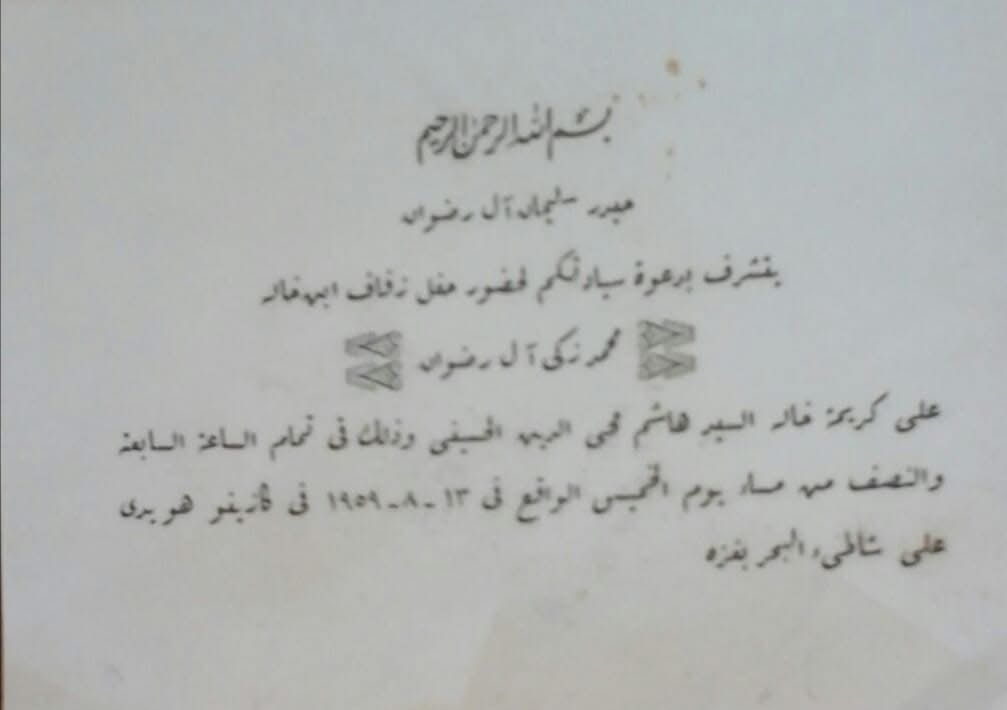 بسم الله الرحمن الرحيم
حيدر سليمان آل رضوان
يتشرف بدعوة سيادتكم لحضور حفل زفاف ابن خاله
محمد زكى آل رضوان
على كريمة خاله السيد هاشم محى الدين الحسينى وذلك فى تمام الساعة السابعة
والنصف من مساء يوم الخميس الواقع فى ١٣ - ٨ - ١٩٥٩ فى كازينو هويدى
على شاطىء البحر بغزه